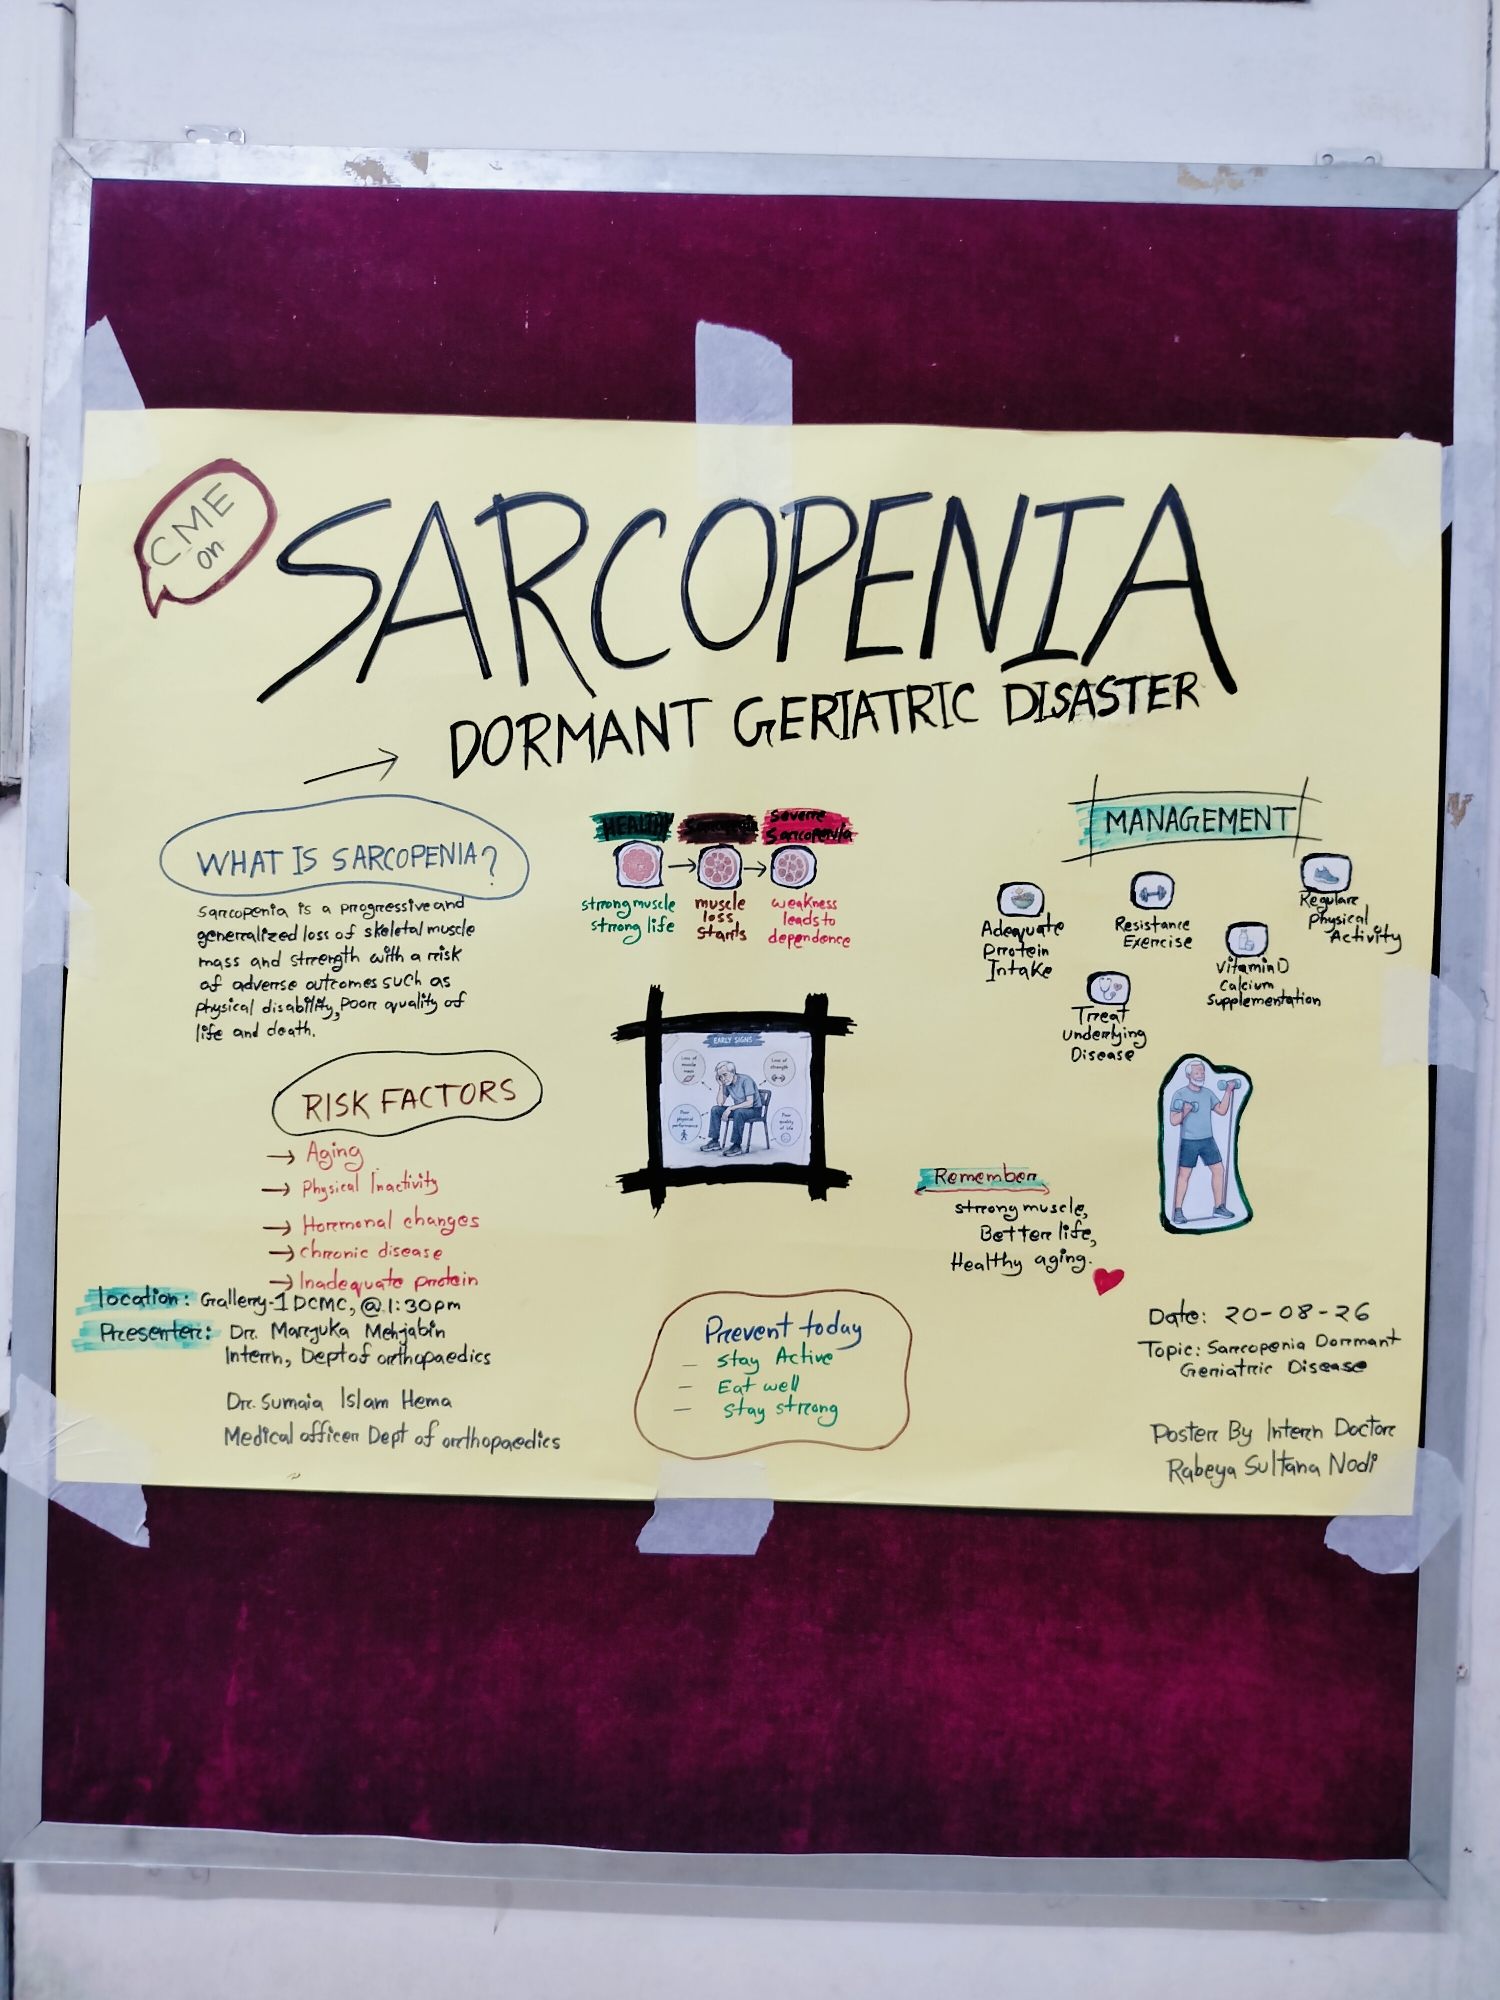 CME
on
SARCOPENIA
DORMANT GERIATRIC DISASTER
WHAT IS SARCOPENIA?
Sarcopenia is a progressive and
generalized loss of skeletal muscle
mass and strength with a risk
of adverse outcomes such as
physical disability, poor quality of
life and death.
RISK FACTORS
→ Aging
→ Physical Inactivity
→ Hormonal changes
→ chronic disease
→ Inadequate protein
location: Gallery-1 DCMC, @ 1:30pm
Presenter: Dr. Marzuka Mehjabin
Intern, Dept of orthopaedics
Dr. Sumaia Islam Hema
Medical officer Dept of orthopaedics
HEALTHY
Severe
Sarcopenia
strong muscle
strong life
muscle
loss
starts
weakness
leads to
dependence
EARLY SIGNS
Loss of
muscle
mass
Loss of
strength
Poor
physical
performance
Poor
quality
of life
Prevent today
— stay Active
— Eat well
— stay strong
MANAGEMENT
Adequate
protein
Intake
Resistance
Exercise
Regular
physical
Activity
Vitamin D
Calcium
Supplementation
Treat
underlying
Disease
Remember
strong muscle,
Better life,
Healthy aging.
Date: 20-08-26
Topic: Sarcopenia Dormant
Geriatric Disease
Poster By Intern Doctor
Rabeya Sultana Nodi